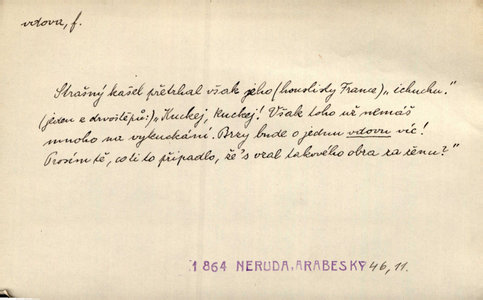 vdova, f.
Strašný kašel přetrhal však jeho (houslisty France) „ichuchu."
(jeden z drvoštěpů:) „Kuckej, kuckej! Však toho už nemáš
mnoho na vykuckání. Brzy bude o jednu vdovu víc!
Prosím tě, co ti to připadlo, že's vzal takového obra za ženu?"
1864 NERUDA, ARABESKY 46, 11.